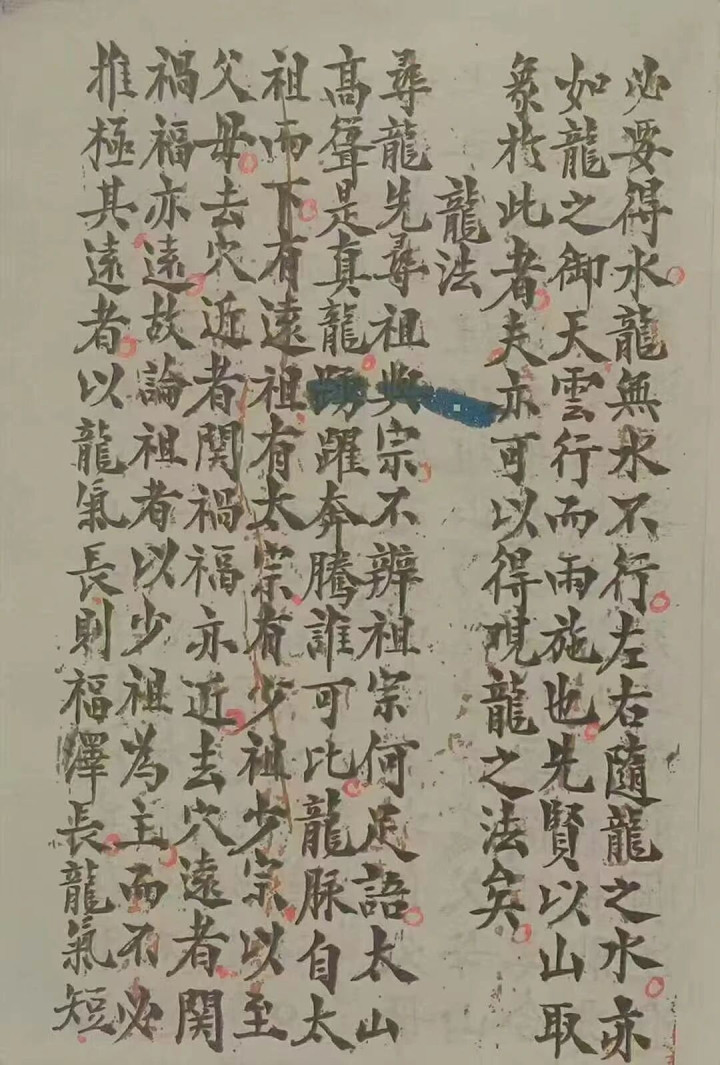 必要得水龍無水不行左右隨龍之水亦
如龍之御天雲行而雨施也先賢以山取
象於此者夫亦可以得覌龍之法矣
龍法
尋龍先尋祖與宗不辨祖宗何足語太山
高聳是真龍踴躍奔騰誰可比龍脉自太
祖而下有遠祖有太宗有少祖少宗以至
父母去穴近者関禍福亦近去穴遠者関
禍福亦遠故論祖者以少祖為主而不必
推極其遠者以龍氣長則福澤長龍氣短